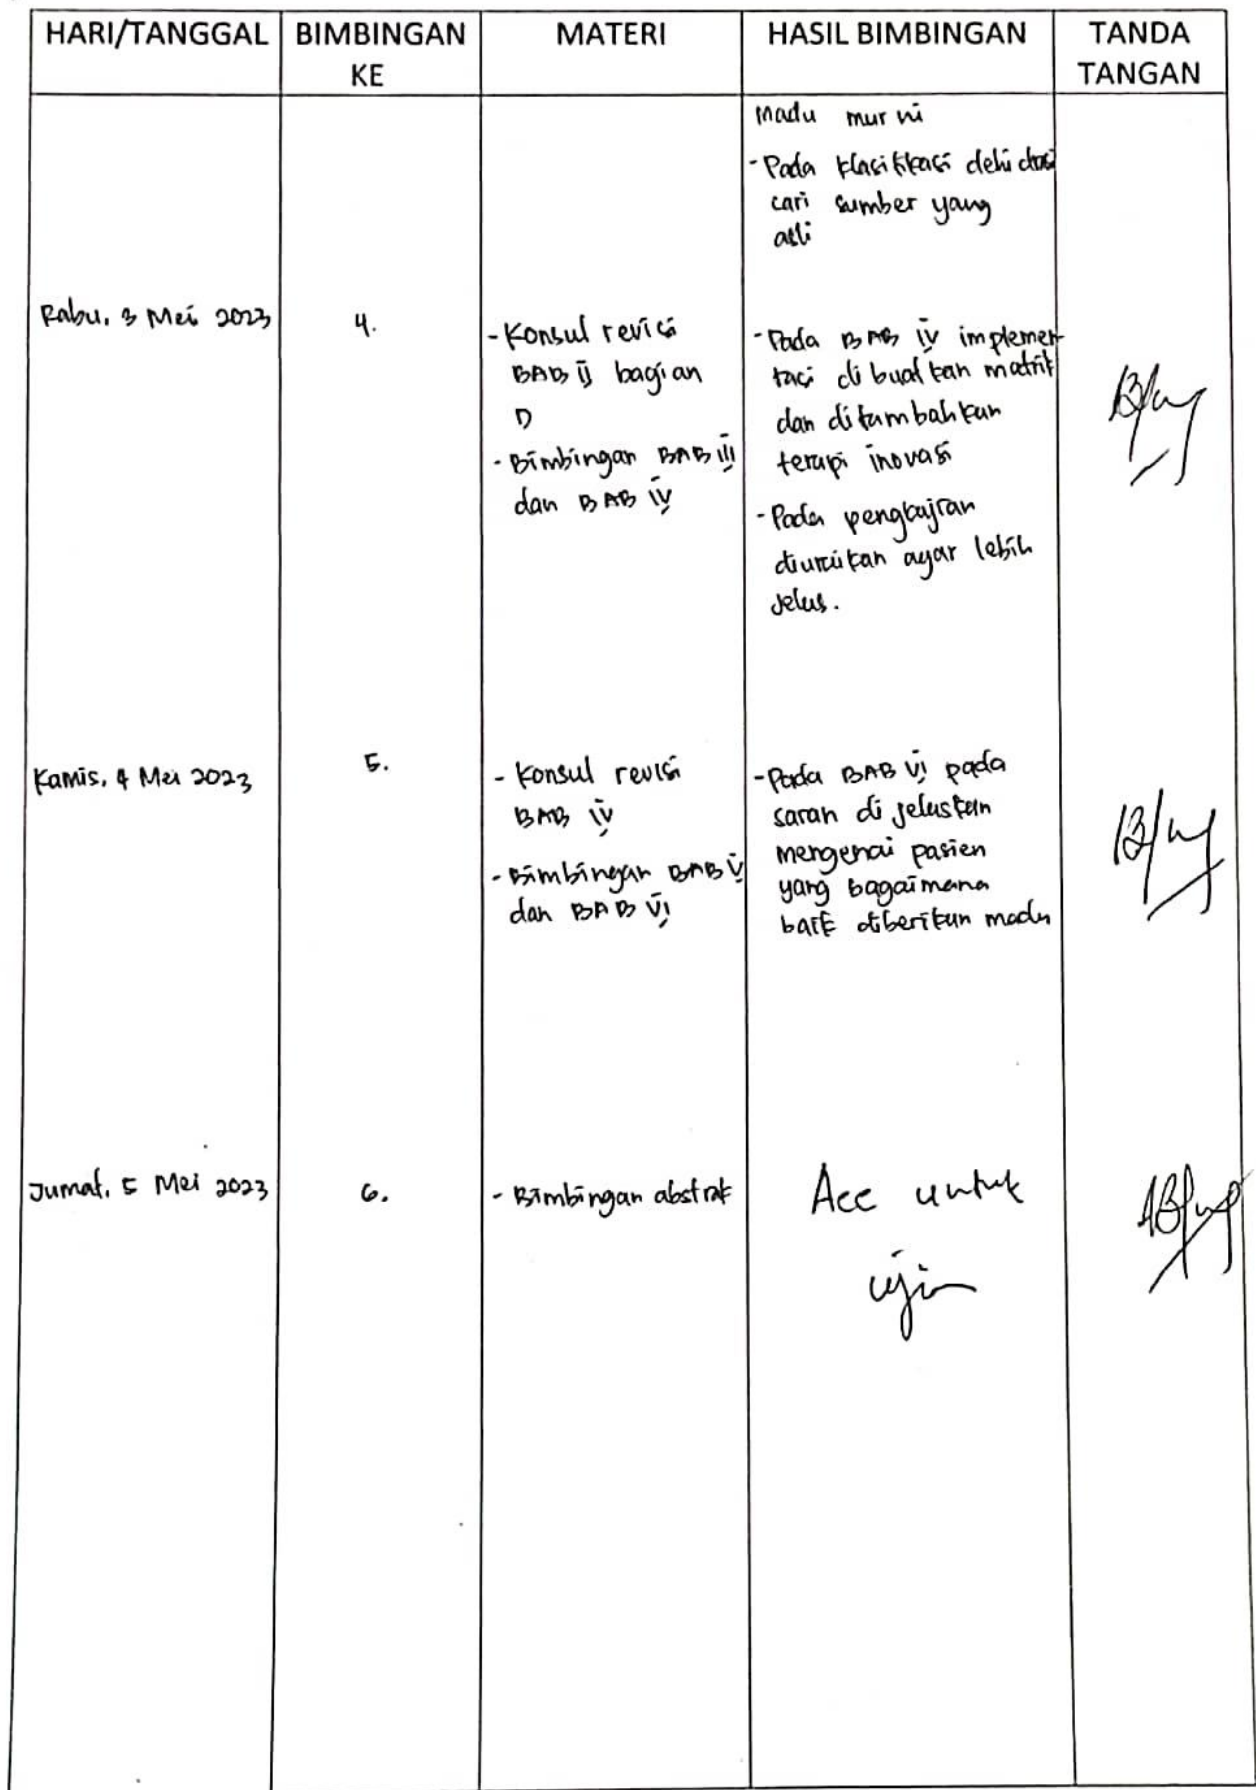 HARI/TANGGAL BIMBINGAN KE MATERI HASIL BIMBINGAN TANDA TANGAN
madu murni
- Pada klasifikasi dehidrasi
cari sumber yang
asli
Rabu, 3 Mei 2023
4.
- Konsul revisi
BAB II bagian
D
- Bimbingan BAB III
dan BAB IV
- Pada BAB IV implemen-
tasi di buatkan matrik
dan ditambahkan
terapi inovasi
- Pada pengkajian
diuraikan agar lebih
jelas.
Kamis, 4 Mei 2023
5.
- Konsul revisi
BAB IV
- Bimbingan BAB V
dan BAB VI
- Pada BAB VI pada
saran di jelaskan
mengenai pasien
yang bagaimana
baik diberikan madu
Jumat, 5 Mei 2023
6.
- Bimbingan abstrak
Acc untuk
ujian